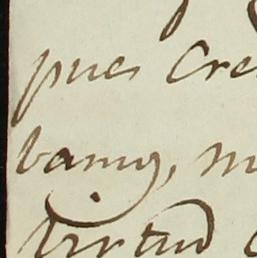 pues cre
bamos, m
virtud